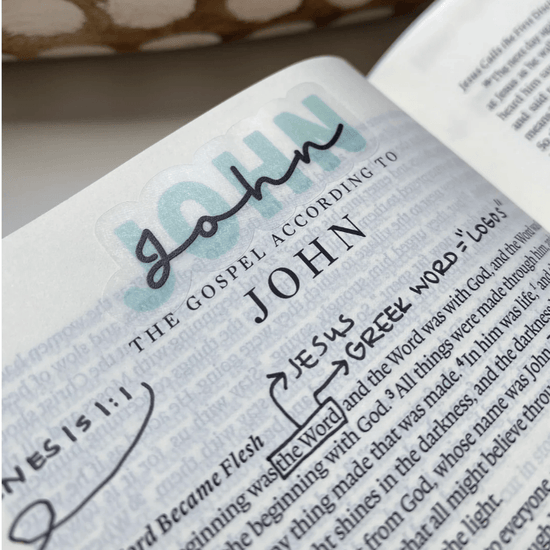 JOHN
John
THE GOSPEL ACCORDING TO
JOHN
JESUS
GREEK WORD = "LOGOS"
NESIS 1:1
Became Flesh
the Word and the Word was with God, and the Word
the beginning with God. ³All things were made through him,
thing made that was made. ⁴In him was life, and
shines in the darkness, and the darkness
from God, whose name was John
that all might believe through
the light.
everyone
Jesus Calls the First
The next day
at Jesus as he
heard him
and said